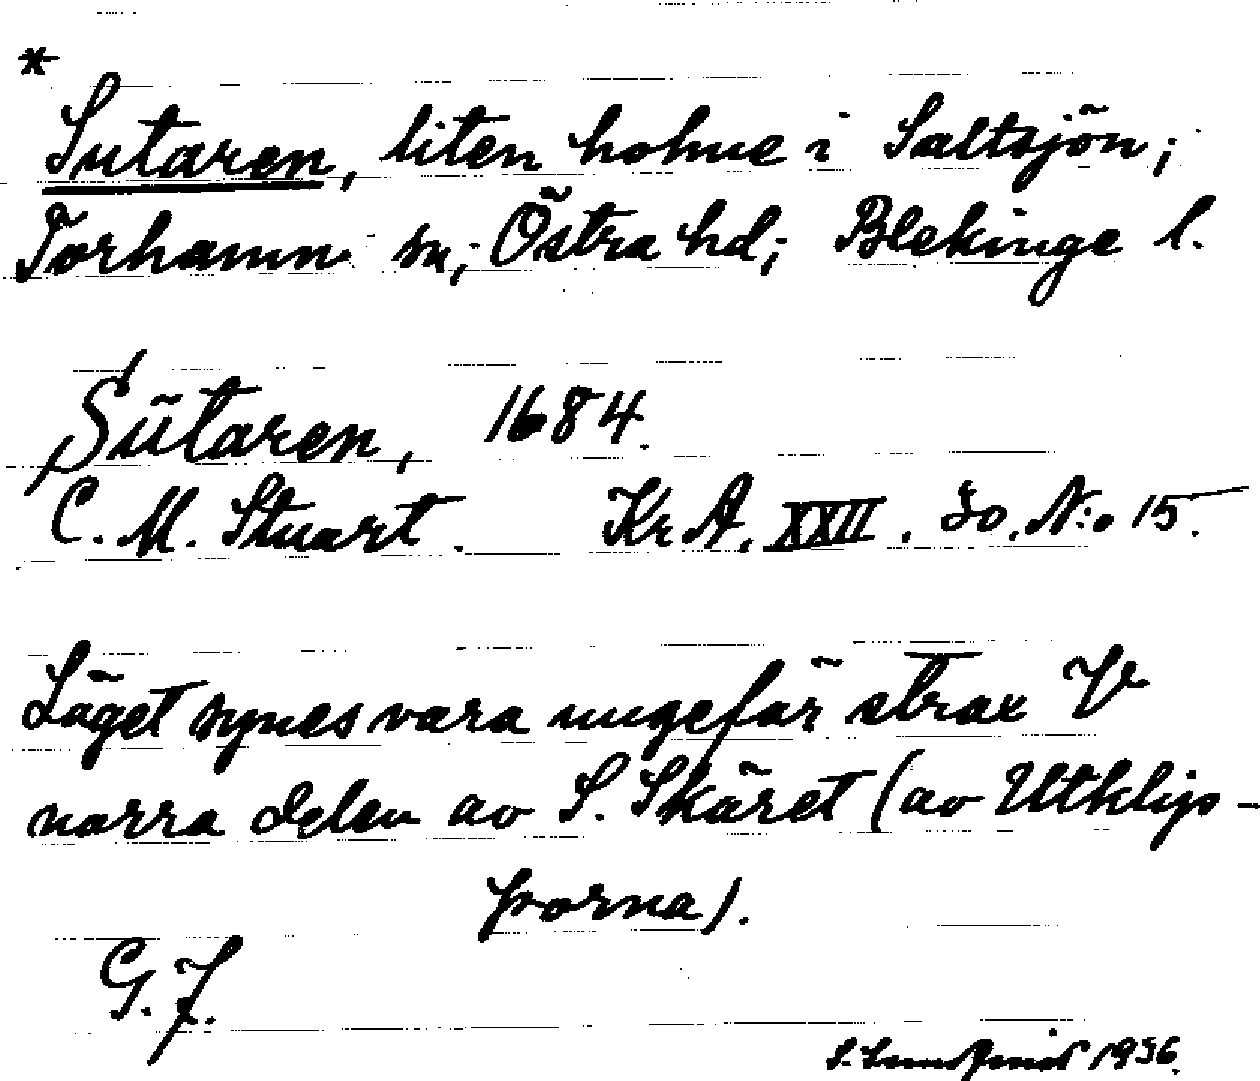 *
Sutaren, liten holme i Saltsjön;
Torhamn sn; Östra hd; Blekinge l.
Sütaren, 1684.
C. M. Stuart. Kr A. XXII. So. N:o 15.
Läget synes vara ungefär strax V
norra delen av S. Skäret (av Utklip-
porna).
G. J.
S. Lundqvist 1936.